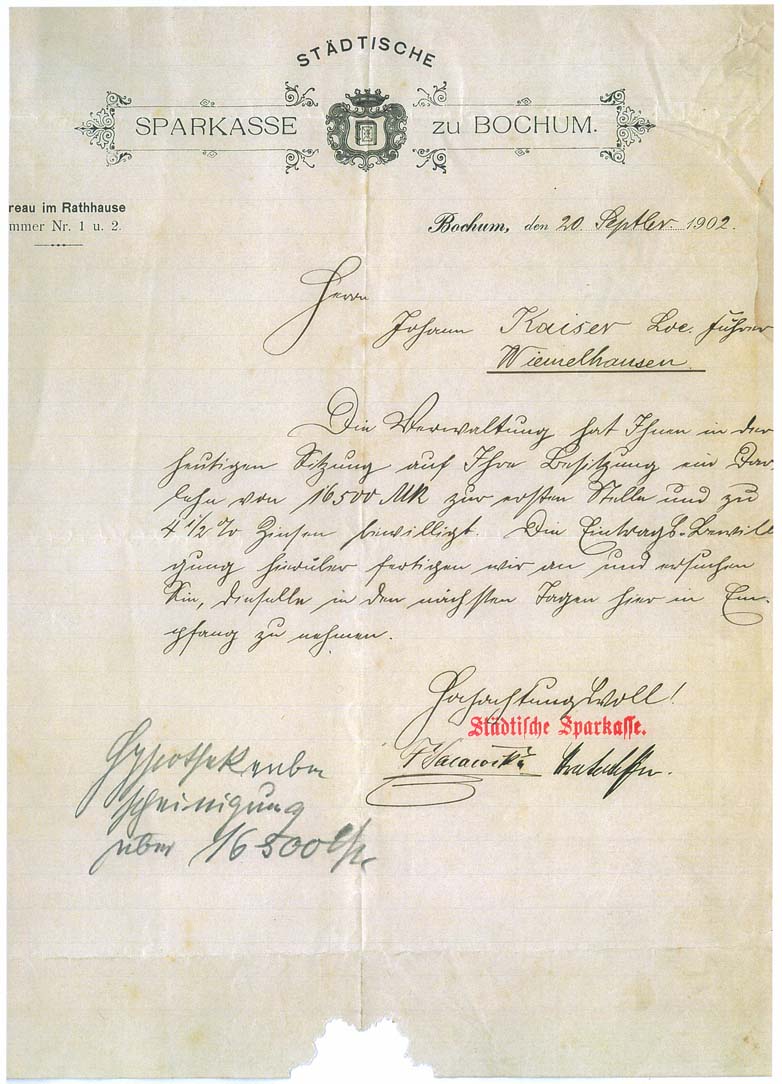 STÄDTISCHE
SPARKASSE zu BOCHUM.
reau im Rathhause
mmer Nr. 1 u. 2.
Bochum, den 20 Septber 1902.
Herrn
Johann Kaiser Loc. führer
Wiemelhausen.
Die Verwaltung hat Ihnen in der
heutigen Sitzung auf Ihre Besitzung ein Dar-
lehn von 16500 Mk zur ersten Stelle und zu
4 1/2 % Zinsen bewilligt. Die Eintrags-Bewilli
gung hierüber fertigen wir an und ersuchen
Sie, dieselbe in den nächsten Tagen hier in Em-
pfang zu nehmen.
Hochachtungsvoll!
Städtische Sparkasse.
Hypothekenbe
scheinigung
über 16500 M.